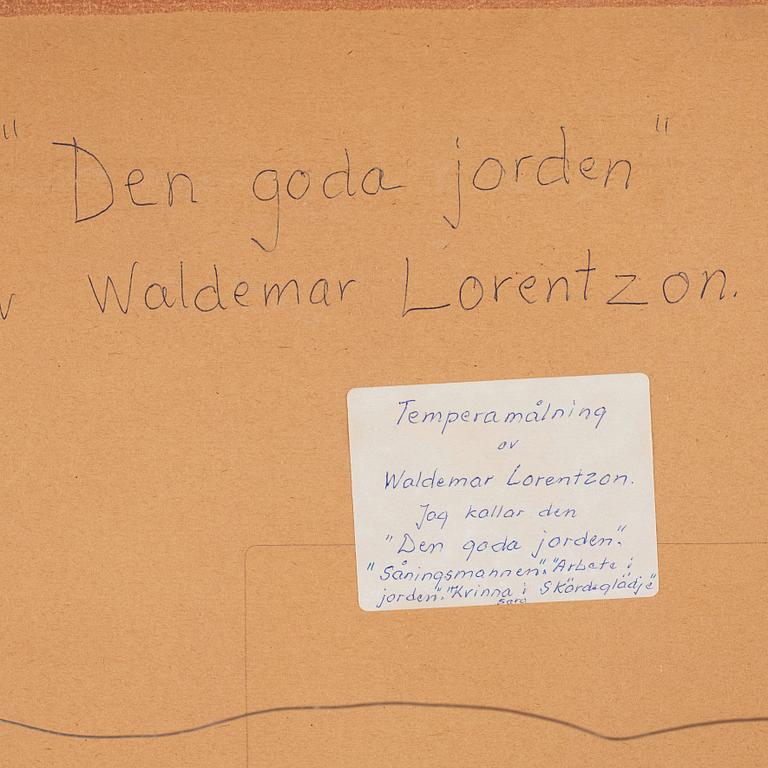 " Den goda jorden "
v Waldemar Lorentzon.
Temperamålning
av
Waldemar Lorentzon.
Jag kallar den
"Den goda jorden".
"Såningsmannen". "Arbete i
jorden". "Kvinna i Skördeglädje"